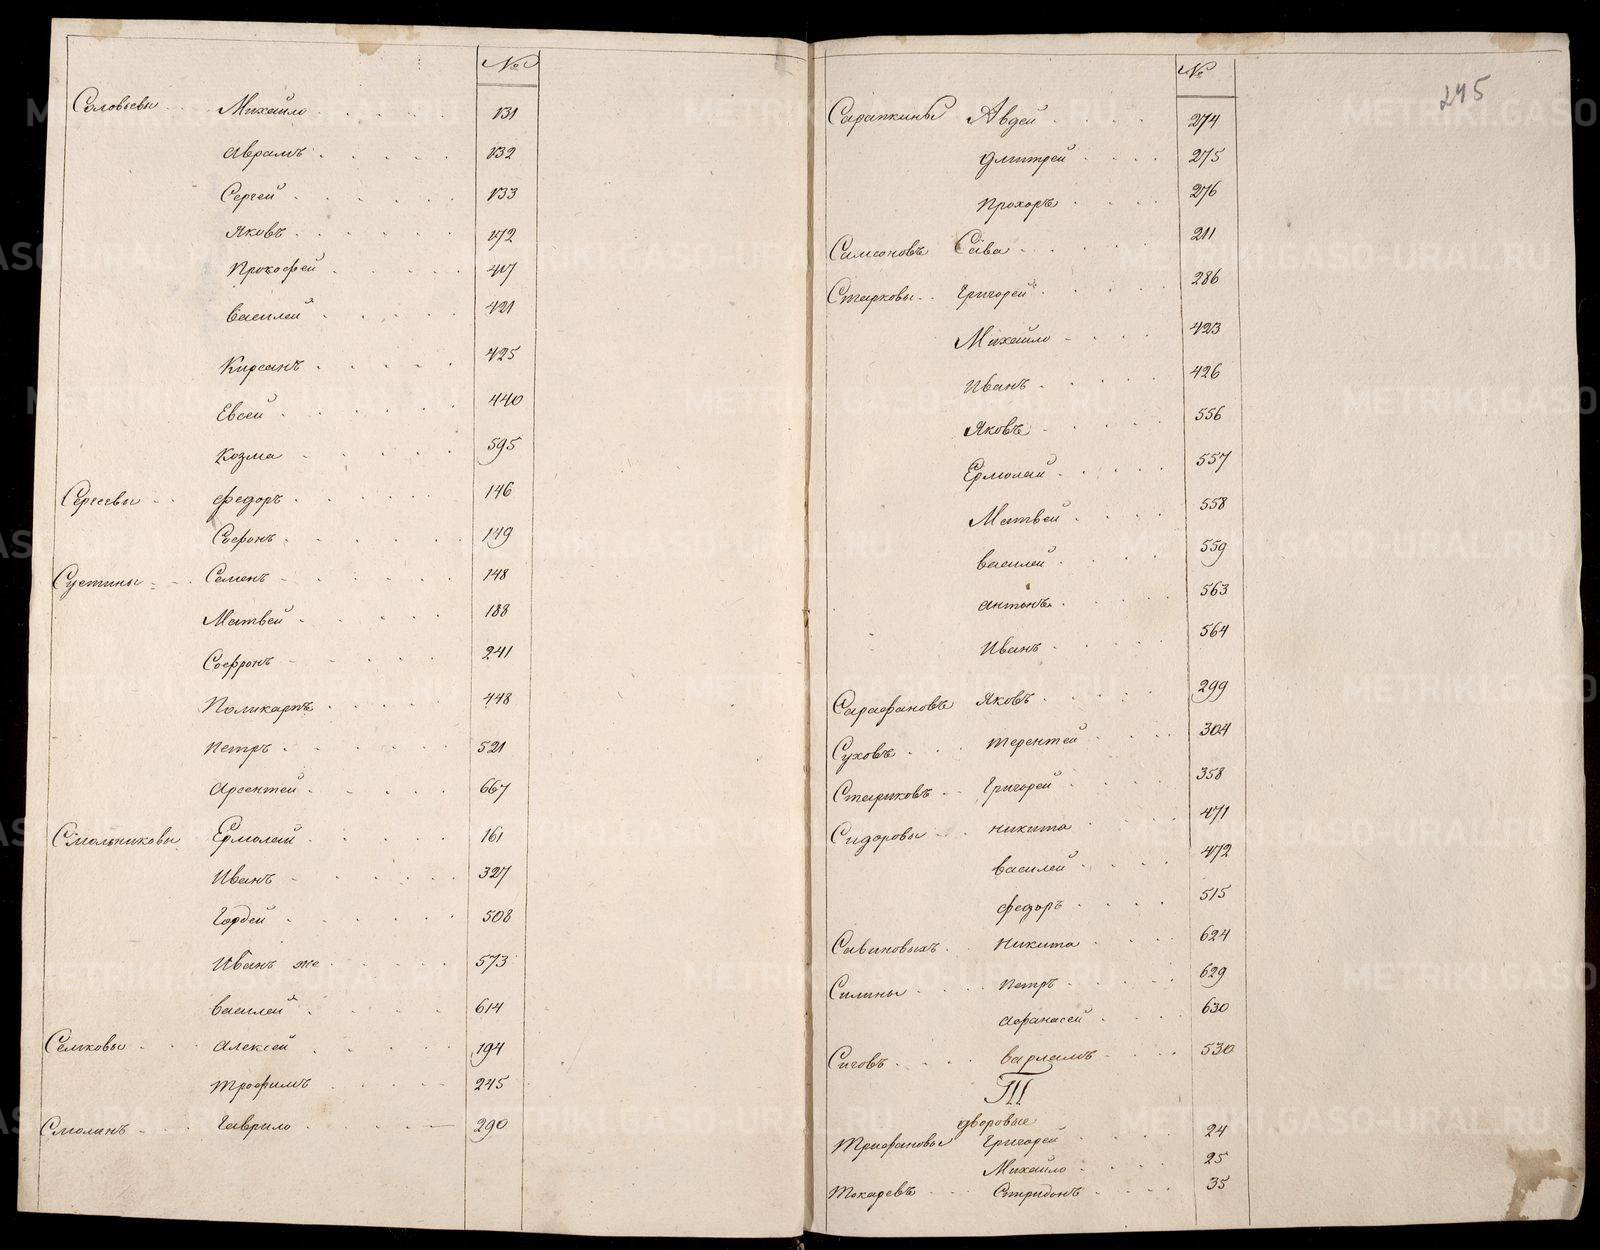 №
Соловьевы Михайло 131
Аврамъ 132
Сергей 133
Яковъ 172
Прокофей 417
Василей 421
Кирсанъ 425
Евсей 440
Козма 595
Сергеевы Федоръ 146
Софонъ 149
Сустины Семенъ 148
Матвей 188
Софронъ 241
Поликарпъ 448
Петръ 521
Арсентей 667
Смольниковы Ермолай 161
Иванъ 327
Гордей 508
Иванъ же 573
Василей 614
Селиковы Алексей 194
Трофимъ 245
Смолинъ Гаврило 290
№
245
Сарапкины Авдей 274
Дмитрей 275
Прохоръ 276
Самсоновъ Сава 211
Старковы Григорей 286
Михайло 423
Иванъ 426
Яковъ 556
Ермолай 557
Матвей 558
Василей 559
Антонъ 563
Иванъ 564
Сарафановъ Яковъ 299
Суховъ Терентей 304
Стариковъ Григорей 358
Сидоровы Никита 471
Василей 472
Федоръ 515
Савиновыхъ Никита 624
Силины Петръ 629
Афанасей 630
Сичовъ Варламъ 530
Т
дворовые
Трифановы Григорей 24
Михайло 25
Токаревъ Спиридонъ 35
METRIKI.GASO-URAL.RU